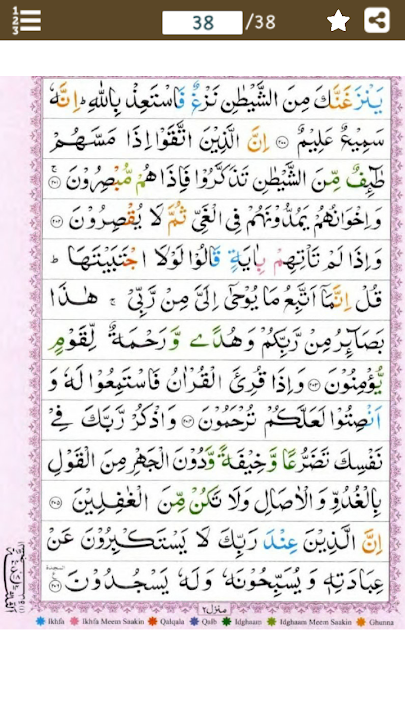 38 /38
يَنْزَغَنَّكَ مِنَ الشَّيْطٰنِ نَزْغٌ فَاسْتَعِذْ بِاللّٰهِ ؕ اِنَّهٗ
سَمِيْعٌ عَلِيْمٌ ﴿۲۰۰﴾ اِنَّ الَّذِيْنَ اتَّقَوْا اِذَا مَسَّهُمْ
طٰٓئِفٌ مِّنَ الشَّيْطٰنِ تَذَكَّرُوْا فَاِذَا هُمْ مُّبْصِرُوْنَ ﴿۲۰۱﴾ ۚ
وَاِخْوَانُهُمْ يَمُدُّوْنَهُمْ فِى الْغَىِّ ثُمَّ لَا يُقْصِرُوْنَ ﴿۲۰۲﴾
وَاِذَا لَمْ تَاْتِهِمْ بِاٰيَةٍ قَالُوْا لَوْلَا اجْتَبَيْتَهَا ؕ
قُلْ اِنَّمَاۤ اَتَّبِعُ مَا يُوْحٰٓى اِلَىَّ مِنْ رَّبِّىْ ۚ هٰذَا
بَصَآئِرُ مِنْ رَّبِّكُمْ وَهُدًى وَّرَحْمَةٌ لِّقَوْمٍ
يُّؤْمِنُوْنَ ﴿۲۰۳﴾ وَاِذَا قُرِئَ الْقُرْاٰنُ فَاسْتَمِعُوْا لَهٗ وَ
اَنْصِتُوْا لَعَلَّكُمْ تُرْحَمُوْنَ ﴿۲۰۴﴾ وَاذْكُرْ رَّبَّكَ فِىْ
نَفْسِكَ تَضَرُّعًا وَّخِيْفَةً وَّدُوْنَ الْجَهْرِ مِنَ الْقَوْلِ
بِالْغُدُوِّ وَالْاٰصَالِ وَلَا تَكُنْ مِّنَ الْغٰفِلِيْنَ ﴿۲۰۵﴾
اِنَّ الَّذِيْنَ عِنْدَ رَبِّكَ لَا يَسْتَكْبِرُوْنَ عَنْ
عِبَادَتِهٖ وَيُسَبِّحُوْنَهٗ وَلَهٗ يَسْجُدُوْنَ ﴿۲۰۶﴾
منزل ۲
Ikhfa Ikhfa Meem Saakin Qalqala Qalb Idghaam Idghaam Meem Saakin Ghunna